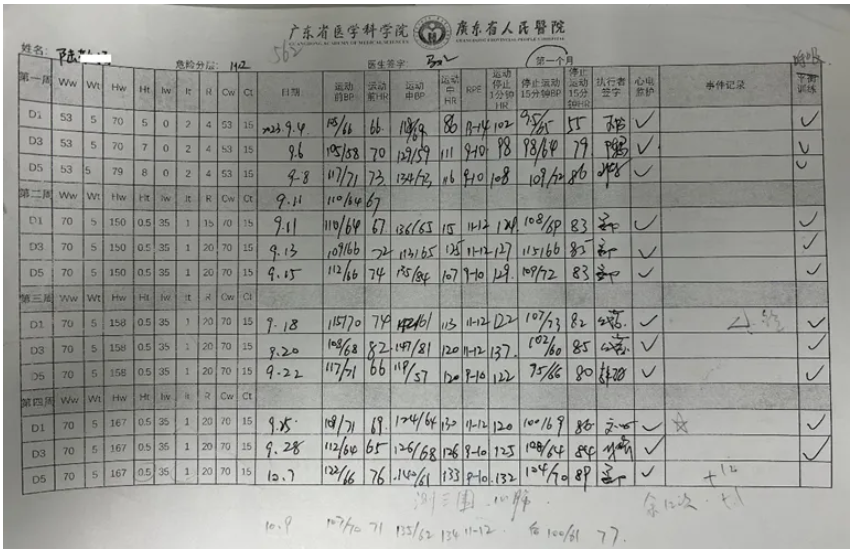 广东省医学科学院 廣東省人民醫院
GUANGDONG ACADEMY OF MEDICAL SCIENCES GUANGDONG PROVINCIAL PEOPLE'S HOSPITAL
562
姓名: 陆
危险分层: 医生签字: 第一个月
第一周 Ww Wt Hw Ht Iw It R Cw Ct 日期 运动前BP 运动前HR 运动中BP 运动中HR RPE 运动停止1分钟HR 停止运动15分钟BP 停止运动15分钟HR 执行者签字 心电监护 事件记录 平衡训练
D1 53 5 70 5 0 2 4 53 15 2023.9.4 /66 66 86 11-14 102 95/65 55 ✓ ✓
D3 53 5 70 7 0 2 4 53 15 9.6 105/58 70 129/59 111 9-10 98 98/64 79 ✓ ✓
D5 53 5 79 8 0 2 4 53 15 9.8 117/71 73 134/73 116 9-10 108 109/72 86 ✓ ✓
第二周 Ww Wt Hw Ht Iw It R Cw Ct 9.11 110/64 67
D1 70 5 150 0.5 35 1 15 70 15 9.11 110/64 67 136/65 115 11-12 108/69 83 ✓ ✓
D3 70 5 150 0.5 35 1 20 70 15 9.13 109/66 72 113/65 125 11-12 127 115/66 85 ✓ ✓
D5 70 5 150 0.5 35 1 20 70 15 9.15 112/66 74 135/84 107 9-10 129 109/72 83 ✓ ✓
第三周 Ww Wt Hw Ht Iw It R Cw Ct
D1 70 5 158 0.5 35 1 20 70 15 9.18 115/70 74 142/61 113 11-12 122 107/73 82 ✓ ✓
D3 70 5 158 0.5 35 1 20 70 15 9.20 108/68 82 147/81 120 11-12 137 102/60 85 ✓ ✓
D5 70 5 158 0.5 35 1 20 70 15 9.22 117/71 66 119/57 120 9-10 122 95/66 80 ✓ ✓
第四周 Ww Wt Hw Ht Iw It R Cw Ct
D1 70 5 167 0.5 35 1 20 70 15 9.25 108/71 69 124/64 130 11-12 120 100/69 86 ✓ ☆ ✓
D3 70 5 167 0.5 35 1 20 70 15 9.28 112/64 65 126/68 126 9-10 125 108/64 84 ✓ ✓
D5 70 5 167 0.5 35 1 20 70 15 10.7 122/66 76 140/61 133 9-10 132 104/70 89 ✓ +12
测三围 心肺 余12次 +1
10.9 107/70 71 135/62 134 11-12 100/61 77